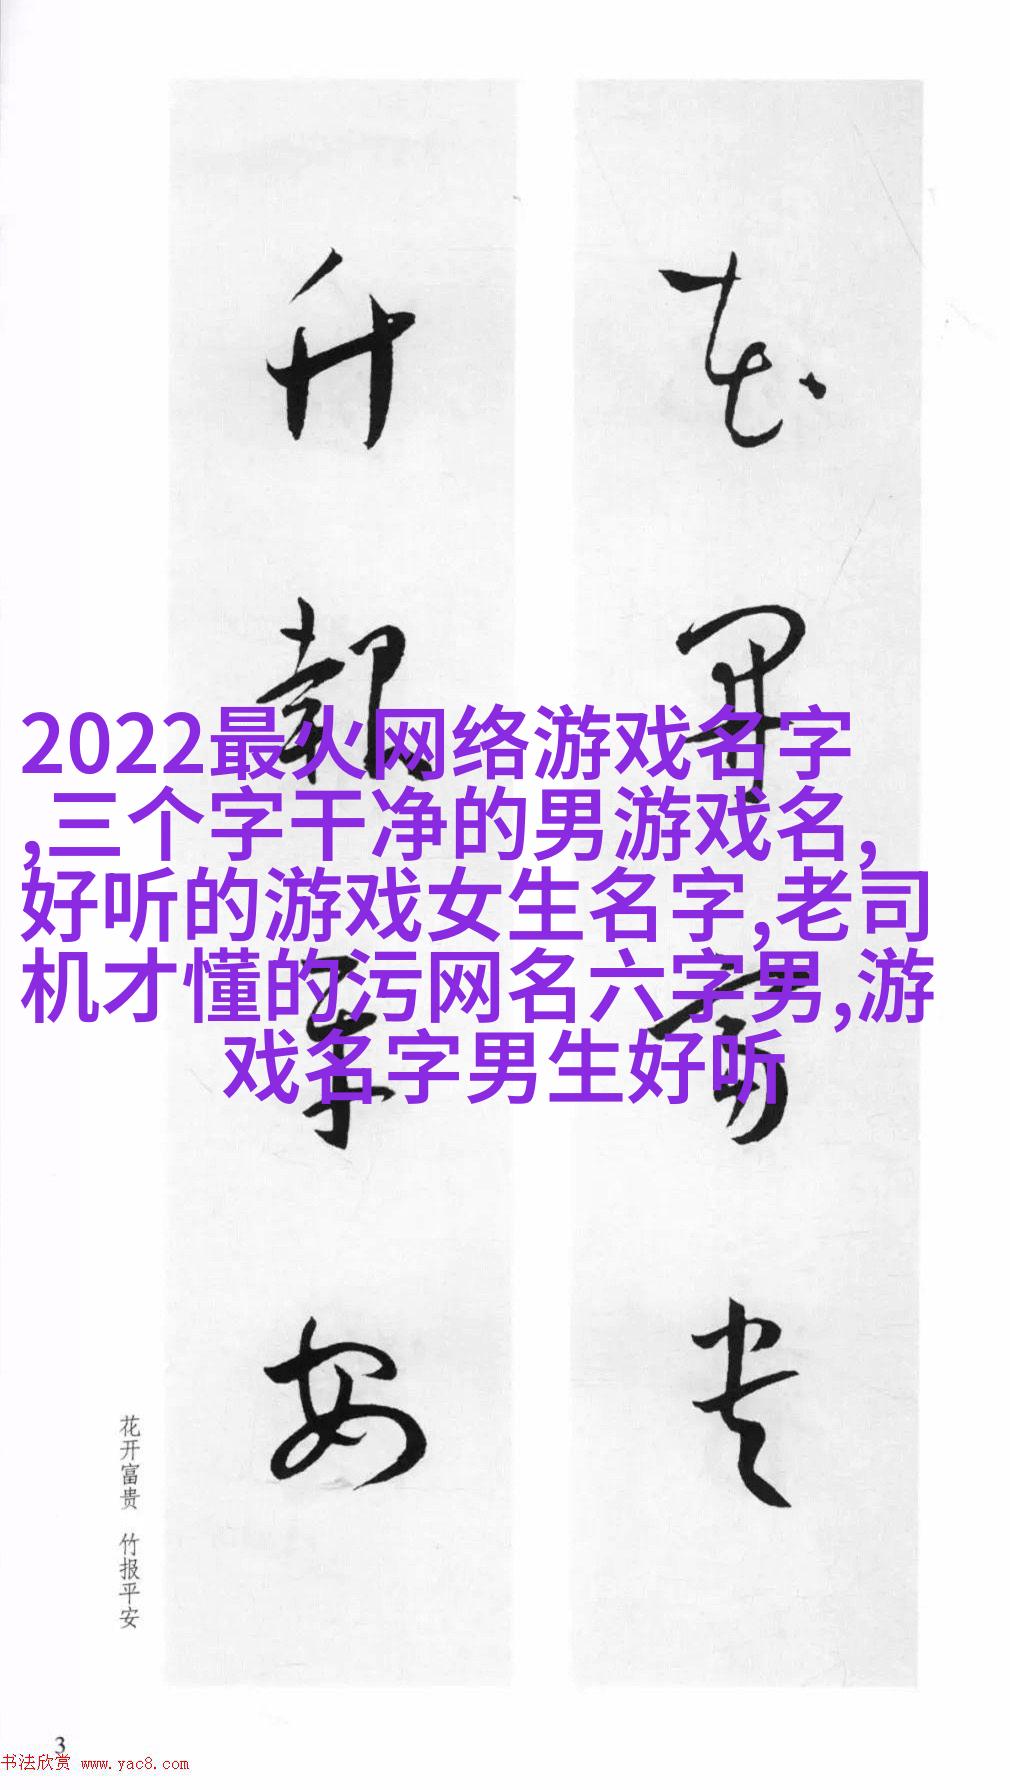 花开富贵
竹报平安
2022最火网络游戏名字
,三个字干净的男游戏名,
好听的游戏女生名字,老司
机才懂的污网名六字男,游
戏名字男生好听
花开富贵 竹报平安
3
书法欣赏 www.yac8.com